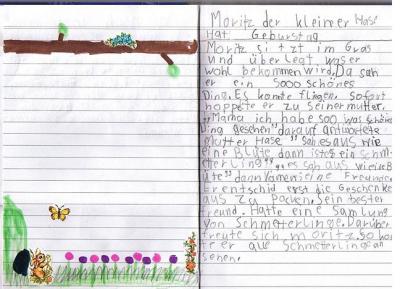 Moritz der kleineer Hase
Hat Geburstag
Moritz sitzt im Gras
und überlegt was er
wohl bekommen wird. Da sah
er ein sooo schönes
Ding. Es konnte fliegen. Sofort
hoppelte er zu seiner mutter.
"Mama ich habe soo was schönes
Ding gesehen" darauf antwortete
Mutter Hase "Sah es aus wie
eine Blüte, dann ist es ein schm-
etterling" "es sah aus wie eine B
lüte" dann kamen eine Freunde.
Er entschid erst die Geschenke
aus zu Packen. Sein bester
freund. Hatte eine Samlung
von Schmetterlinge. Darüber
freute sich moritz. So kon
te er alle Schmetterlinge an
sehen.